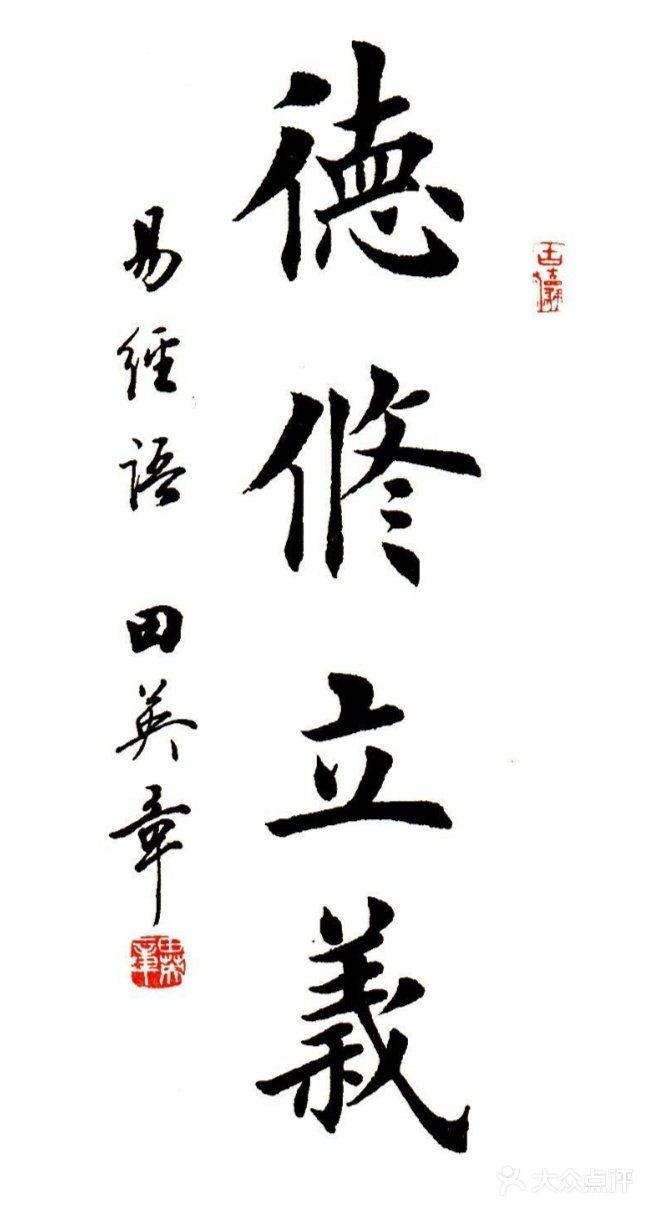 德修立義
易經語 田英章
大众点评